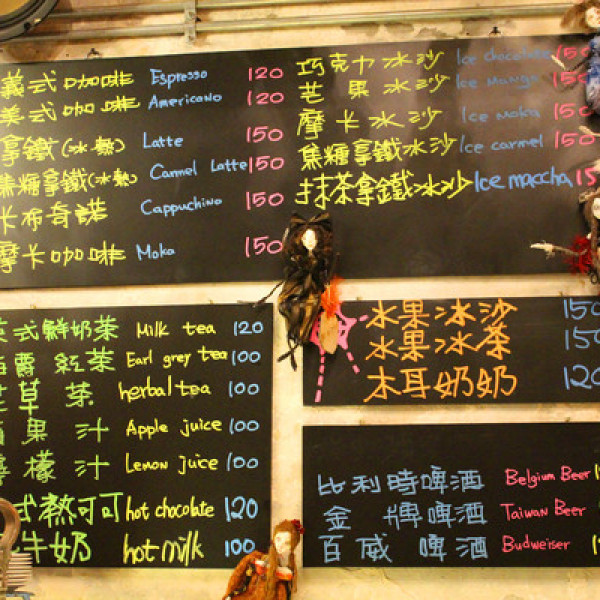 義式咖啡 Espresso 120
美式咖啡 Americano 120
拿鐵(冰熱) Latte 150
焦糖拿鐵(冰熱) Carmel Latte 150
卡布奇諾 Cappuchino 150
摩卡咖啡 Moka 150
巧克力冰沙 Ice chocolate 150
芒果冰沙 Ice Mango 150
摩卡冰沙 Ice Moka 150
焦糖拿鐵冰沙 Ice carmel 150
抹茶拿鐵冰沙 Ice maccha 15
式鮮奶茶 Milk tea 120
爵紅茶 Earl grey tea 100
草茶 herbal tea 100
果汁 Apple juice 100
檸檬汁 Lemon juice 100
式熱可可 hot chocolate 120
牛奶 hot milk 100
水果冰沙 150
水果冰茶 150
木耳奶奶 120
比利時啤酒 Belgium Beer
金牌啤酒 Taiwan Beer
百威啤酒 Budweiser